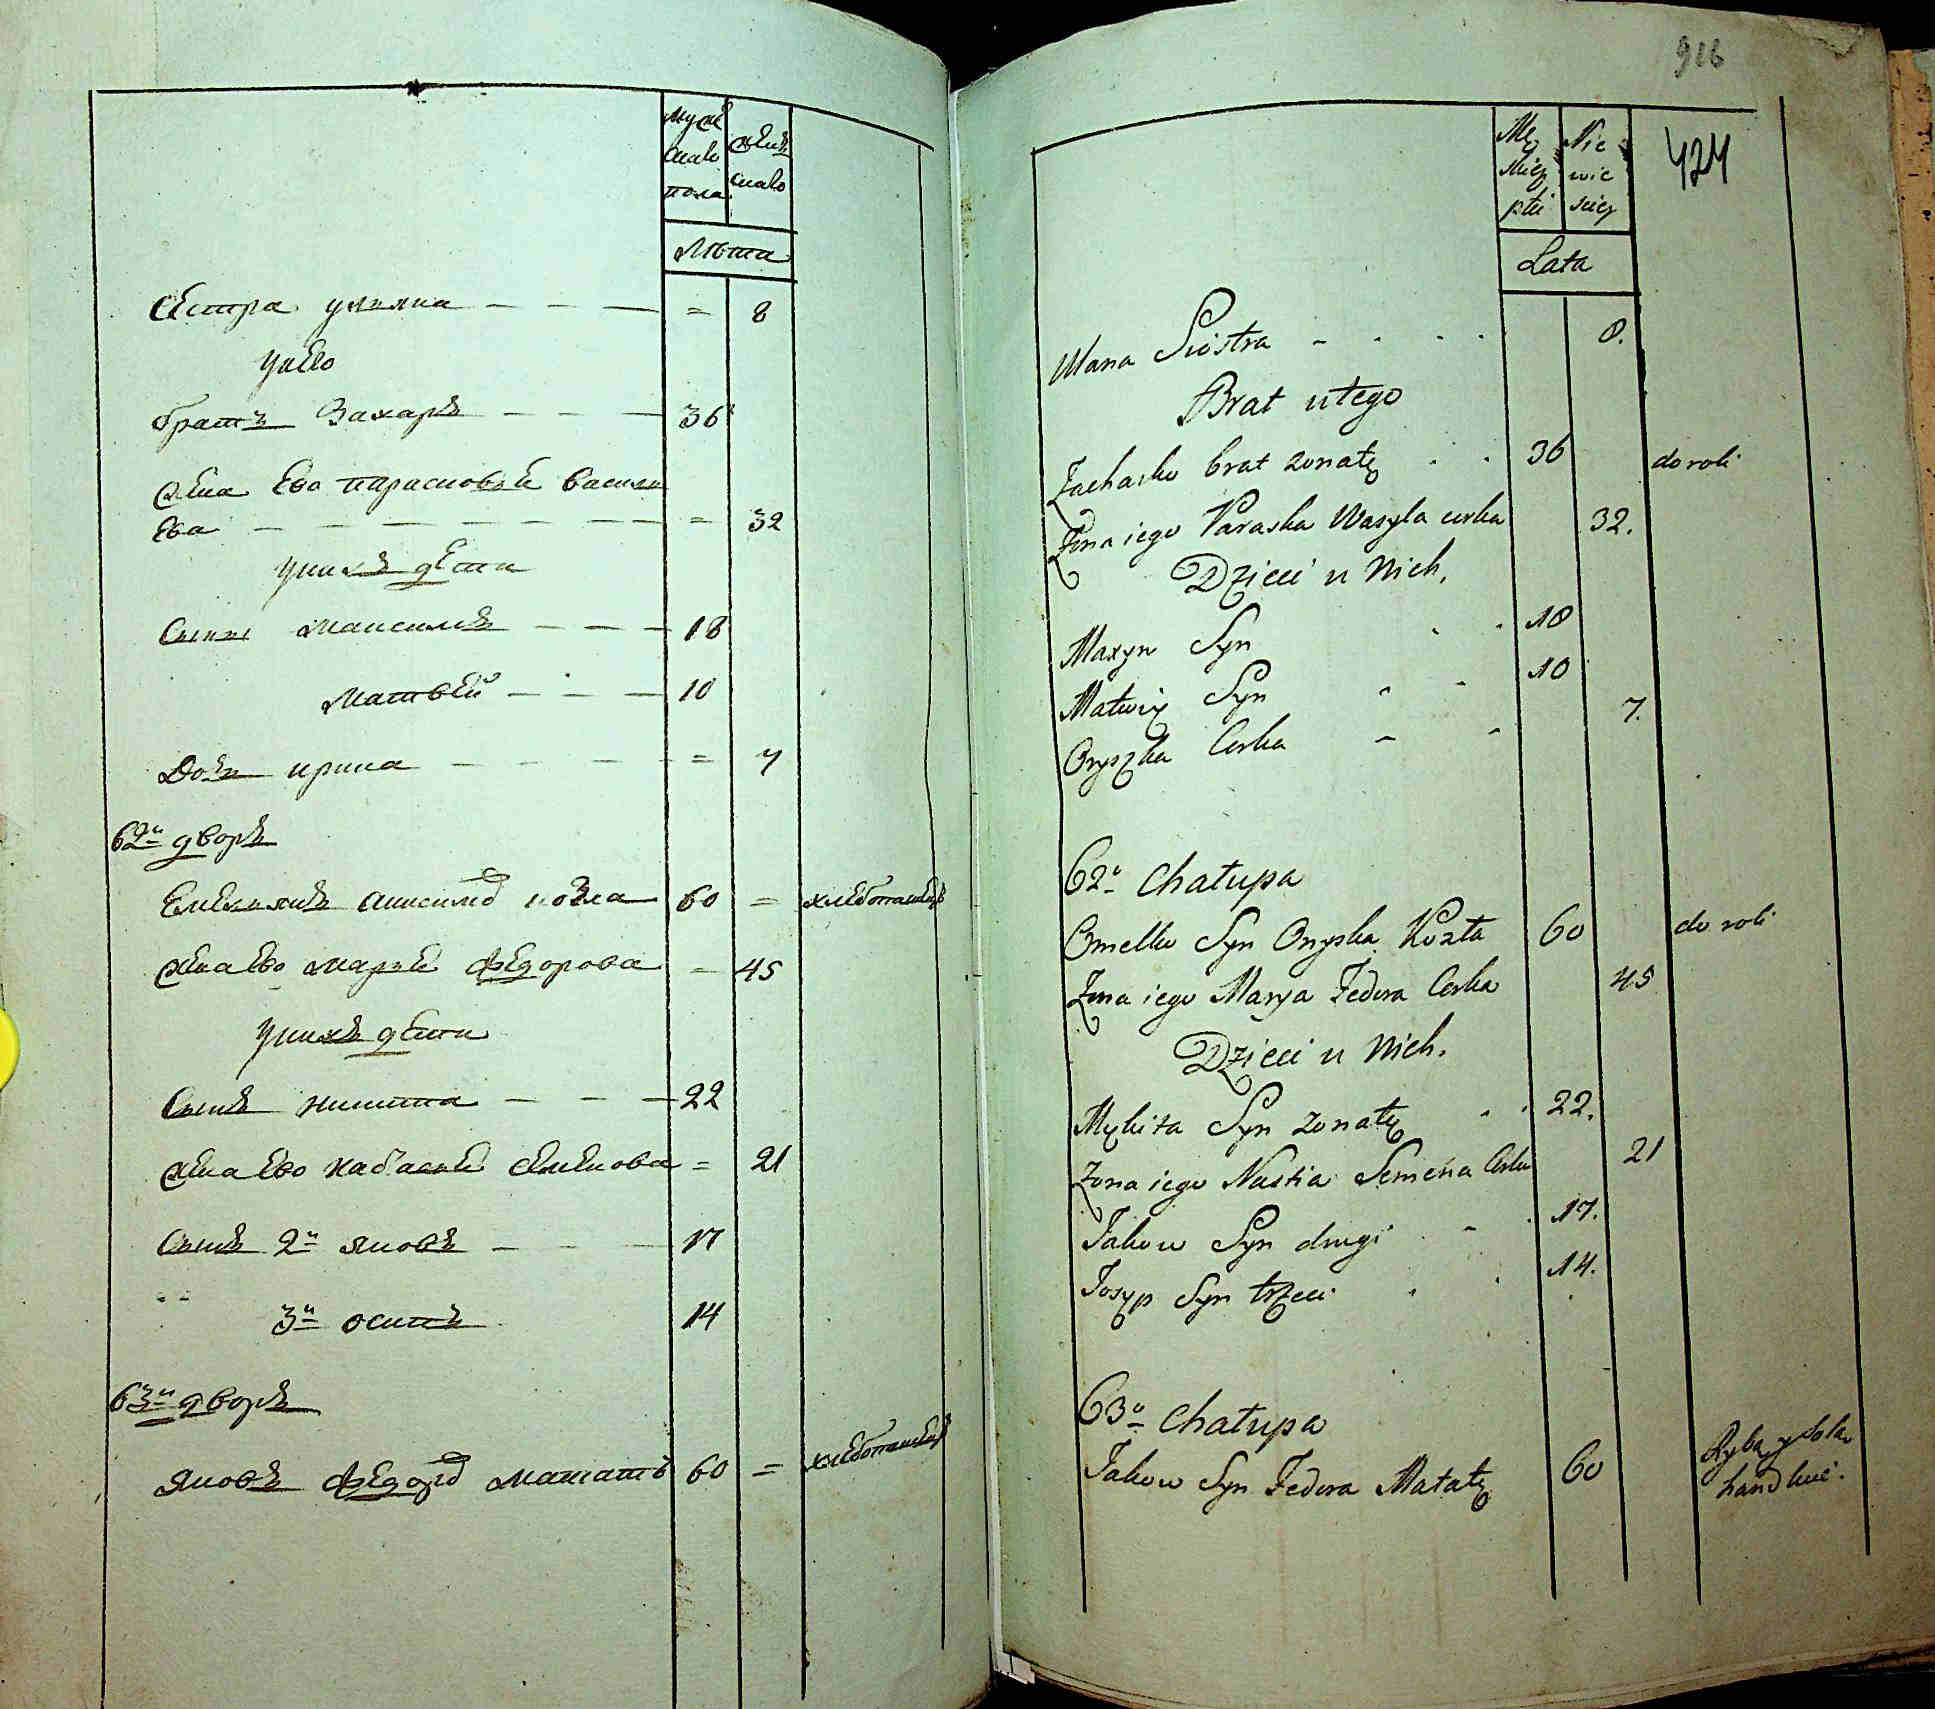 Муже
скаго
пола
Женс
скаго
Лѣта
Сестра улияна — — — = 8
у него
братъ Захаръ — — — 36
жена Его парасковья Василь
Ева — — — — — — — = 32
у нихъ дети
Сыны Максимъ — — — 18
Матвей — — — 10
Дочь ирина — — — — = 7
62й дворъ
Емельянъ анисимов козла 60 = хлебопашецъ
жена Его марья федорова = 45
у нихъ дети
Сынъ никита — — — 22
жена Его настасья семенова = 21
Сынъ 2й яковъ — — — 17
3й осипъ 14
63й дворъ
яковъ федоров мататъ 60 = хлебопашецъ
916
424
Mę
skiey
płci
Nie
wie
sciey
Lata
Ulana Siostra - - - - 8.
Brat u tego
Zacharko brat zonaty - - 36 do roli
Zona iego Paraska Wasyla curka 32.
Dzieci u Nich.
Maxym Syn - - 18
Matwiy Syn - - 10
Oryszka Curka - - 7.
62a Chałupa
Omelko Syn Onyska Kozła 60 do roli
Zona iego Marya Fedora Curka 45
Dzieci u Nich.
Mykita Syn zonaty - - 22.
Zona iego Nastia Semena Curka 21
Jakow Syn drugi - - 17.
Josyp Syn trzeci - - 14.
63a Chałupa
Jakow Syn Fedora Mataty 60 Rybą y solą
handluie.